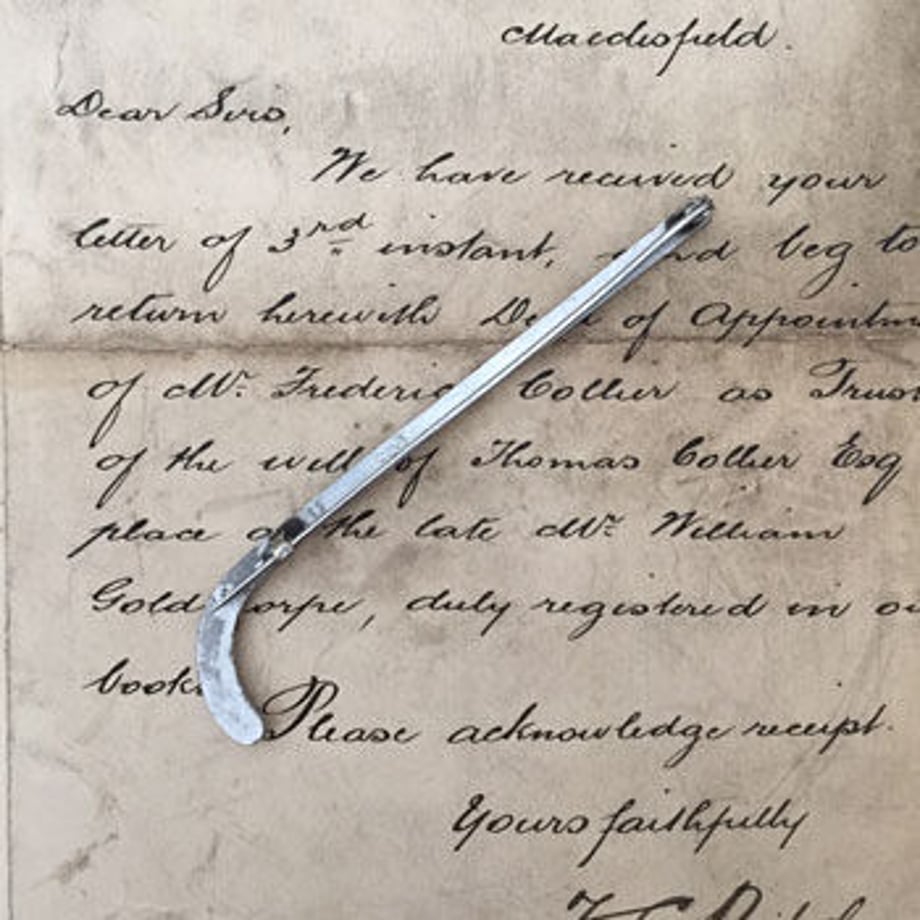 Macclesfield.
Dear Sirs,
We have received your
letter of 3rd instant, and beg to
return herewith Deed of Appointm
of Mr. Frederic Collier as Trust
of the will of Thomas Collier Esq
place of the late Mr. William
Goldthorpe, duly registered in ou
books
Please acknowledge receipt.
Yours faithfully